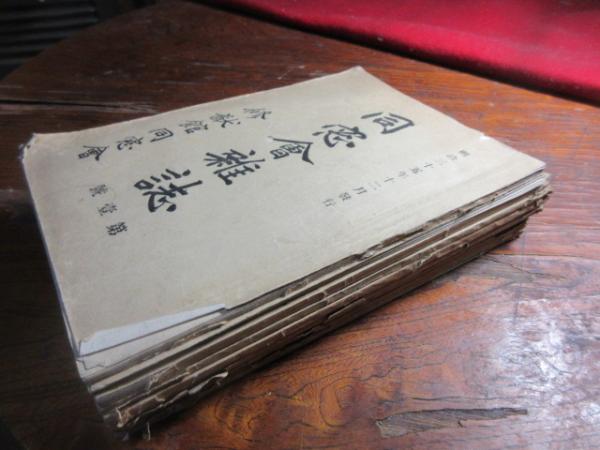 明治三十五年十二月發行
同窓會雜誌
脩猷館同窓會
第壹號